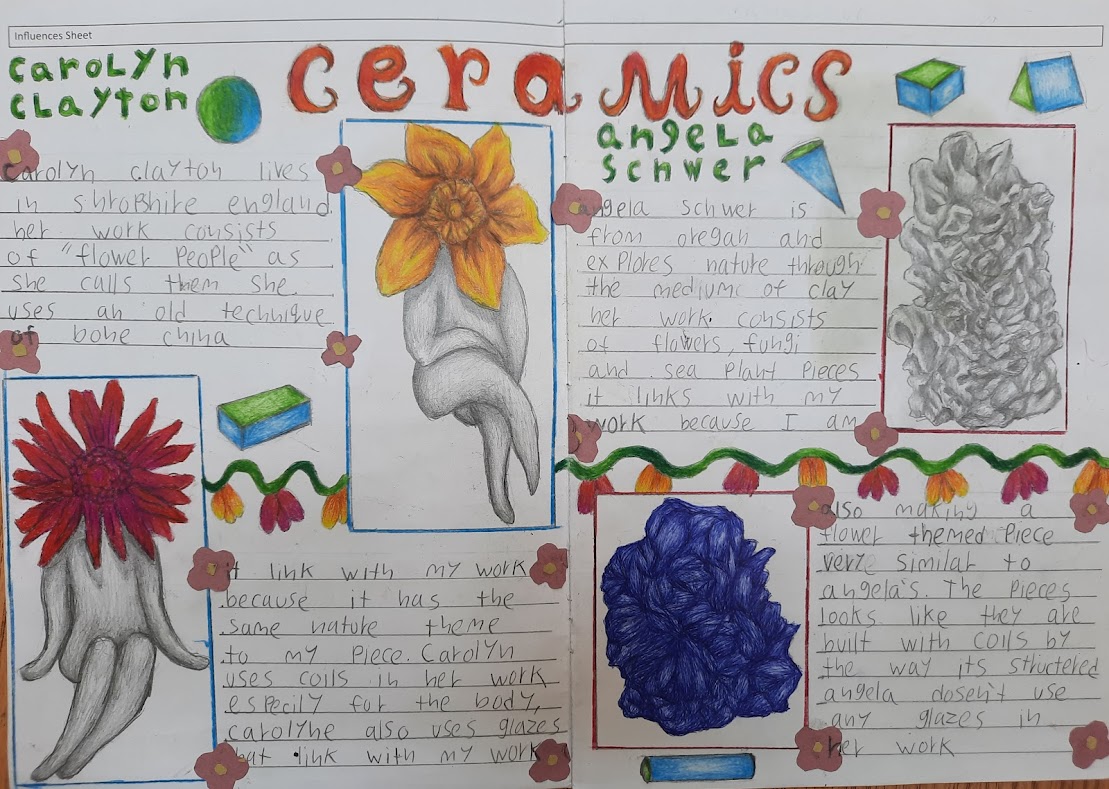 Influences Sheet
CeramicS
CaroLyn
CLayton
Carolyn clayton lives
in shroBhire england.
her work consists
of "flower PeoPle" as
she calls them she
uses an old technique
of bone china
it link with my work
because it has the
same nature theme
to my Piece. Carolyn
uses coils in her work
especily for the body,
carolyne also uses glazes
that link with my work
angeLa
Schwer
angela schwer is
from oregan and
exPlores nature through
the medium of clay
her work consists
of flowers, fungi
and sea Plant Pieces
it links with my
work because I am
also making a
flower themed Piece
very similar to
angela's. The Pieces
looks like they are
built with coils by
the way its structered
angela dosen't use
any glazes in
her work